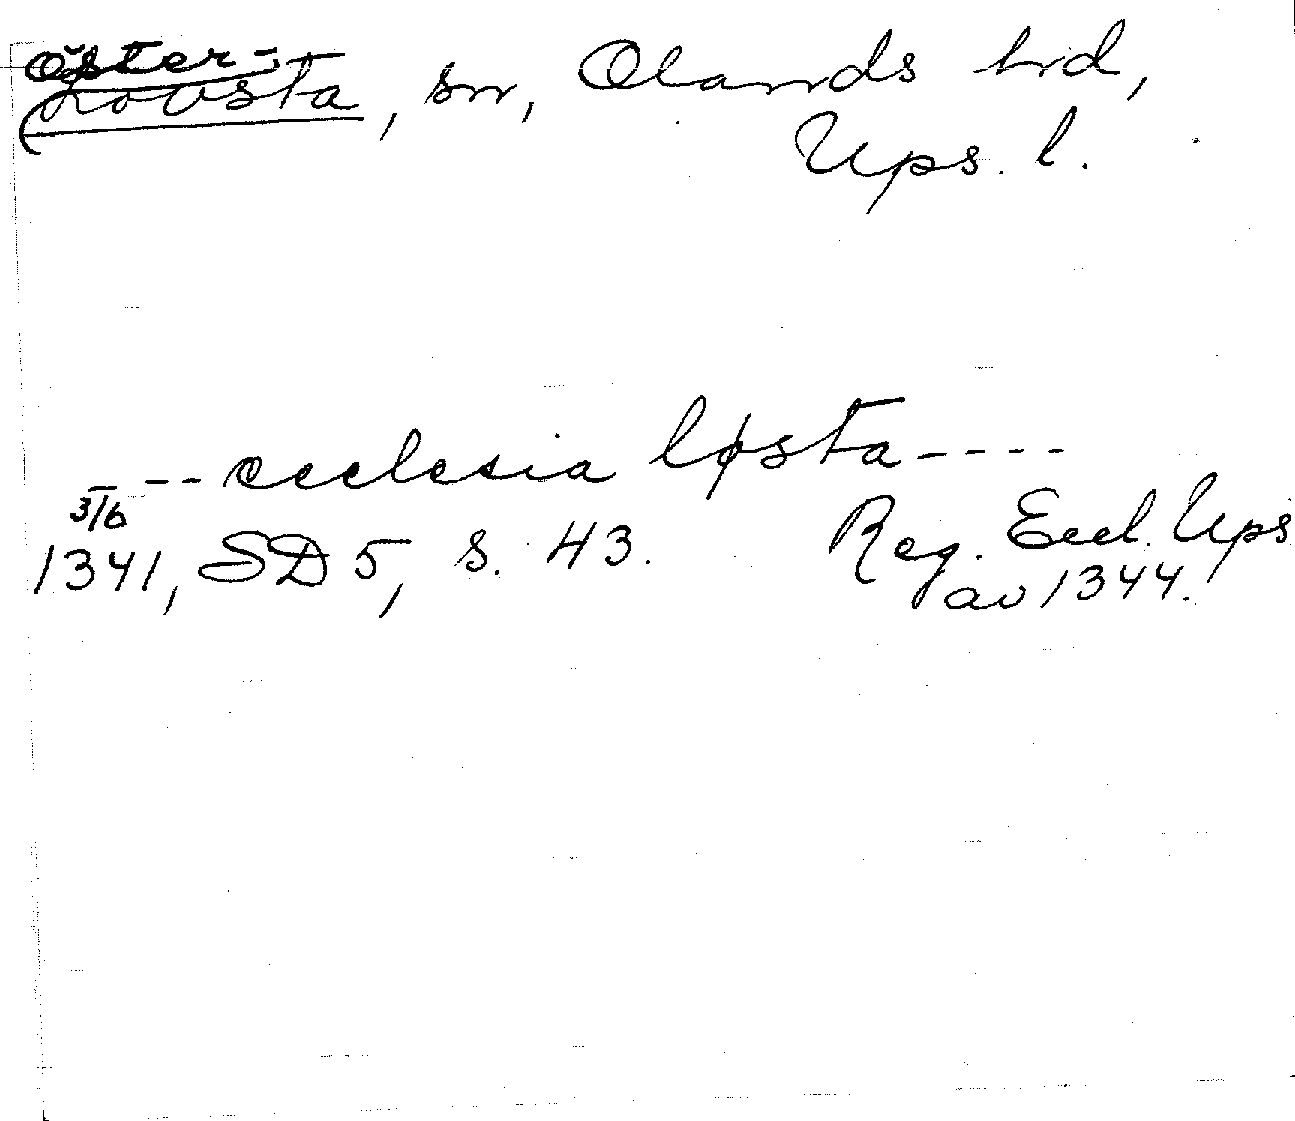 Öster-
Lövsta, sn, Olands hrd,
Ups. l.
--- ecclesia løsta ----
3/6
1341, SD 5, s. 43. Reg. Eccl. Ups
av 1344.